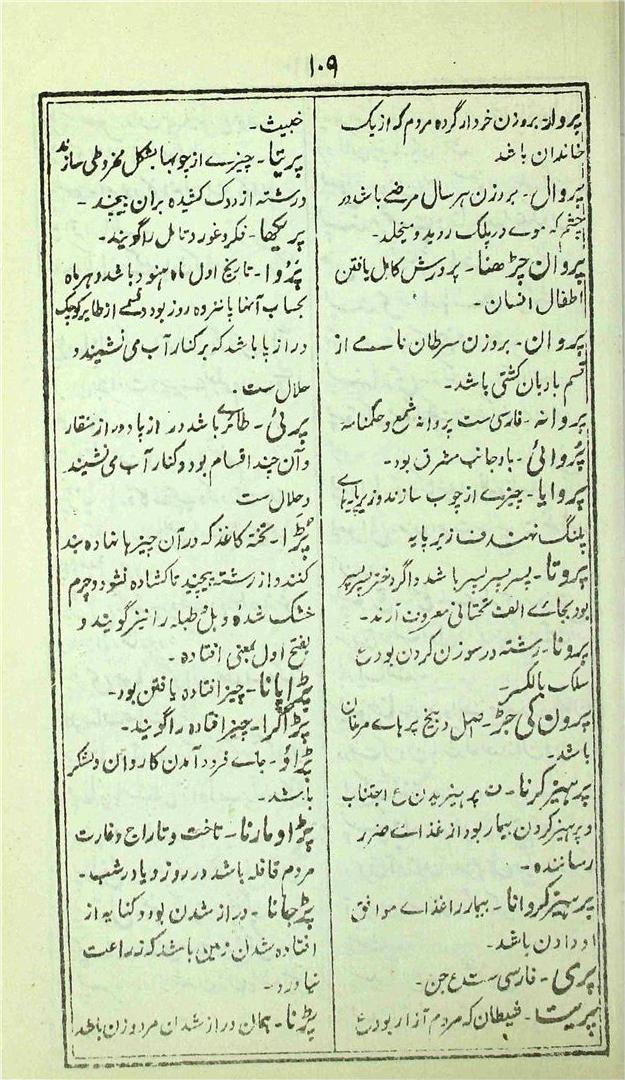 ۱۰۹
پروار۔ بروزن خردار گروه مردم که از یک
خاندان باشد
پروال۔ بروزن ہر سال مرضے باشد در
چشم که موے در پلک روید و میخلد۔
پروان چڑھنا۔ پرورش کامل یافتن
اطفال انسان۔
پروان۔ بروزن سرطان نامے از
قسم بادبان کشتی باشد۔
پروانه۔ فارسی ست پروانهٔ شمع و حکمنامه
پُروائی۔ باد جانب مشرق بود۔
پروایا۔ چیزے از چوب سازند و زیر پایہاے
پلنگ نهند ف زیر پایه
پروتا۔ پسر پسر پسر باشد و اگر دختر پسر پسر
بود بجاے الف تحتانی معروف آرند۔
پرونا۔ رشته در سوزن کردن بود ع
سلک بالکسر۔
پرون کی جڑ۔ اصل و بیخ پر ہاے مرغان
باشد۔
پرہیز کرنا۔ ف پرہیزیدن ع اجتناب
و پرہیز کردن بیمار بود از غذاے ضرر
رساننده۔
پرہیز کروانا۔ بیمار را غذاے موافق
او دادن باشد۔
پری۔ فارسی ست ع جن۔
پریت۔ شیطان که مردم آزار بود ع
خبیث۔
پریتا۔ چیزے از چوبہا بشکل مخروطی سازند
و رشته از دوک کشیده بران پیچند۔
پریکھا۔ فکر و غور و تامل را گویند۔
پَرُوا۔ تاریخ اول ماه ہنود باشد و ہر ماه
بحساب آنها پانزده روز بود و قسمے از طایر کوچک
دراز پا باشد که بر کنار آب می نشیند و
حلال ست۔
پرئی۔ طائرے باشد دراز پا و دراز منقار
و آن چند اقسام بود و کنار آب می نشیند
و حلال ست
پُڑا۔ تختهٔ کاغذ که در آن چیز ہا نهاده بند
کنند و از رشته پیچند تا کشاده نشود و چرم
خشک شده و دہل و طبله را نیز گویند و
بفتح اول بمعنی افتاده۔
پڑا پانا۔ چیز افتاده یافتن بود۔
پڑا گرا۔ چیز افتاده را گویند۔
پڑاؤ۔ جاے فرود آمدن کاروان و لشکر
باشد۔
پڑاو مارنا۔ تاخت و تاراج و غارت
مردم قافله باشد در روز و یا در شب۔
پڑجانا۔ دراز شدن بود و کنایه از
افتاده شدن زمین باشد که زراعت
نیارد۔
پڑنا۔ ہمان دراز شدن مرد و زن باشد